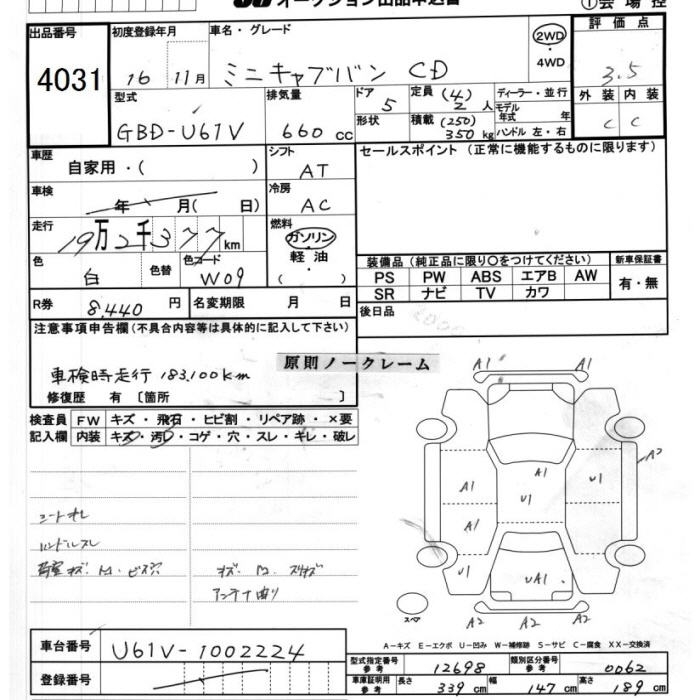 オークション出品申込書
①会場控
出品番号
4031
初度登録年月
16 11月
車名・グレード
ミニキャブバン CD
2WD
4WD
評価点
3.5
型式
GBD-U61V
排気量
660 cc
ドア
5
形状
定員 (4) 2 人
積載 (250) 350 kg
ディーラー・並行
モデル年式 年
ハンドル 左・右
外装 内装
C C
車歴
自家用・( )
シフト
AT
セールスポイント (正常に機能するものに限ります)
車検
年 月( 日)
冷房
AC
走行
19万2千377km
燃料
ガソリン
軽油
( ・ )
色
白
色替
色コード
W09
装備品(純正品に限り○をつけてください)
PS PW ABS エアB AW
SR ナビ TV カワ
新車保証書
有・無
R券
8,440 円
名変期限 月 日
後日品
注意事項申告欄(不具合内容等は具体的に記入して下さい)
車検時走行 183,100km
修復歴 有 〔箇所 〕
原則ノークレーム
検査員記入欄
FW キズ・飛石・ヒビ割・リペア跡・×要
内装 キズ・汚・コゲ・穴・スレ・キレ・破レ
A1 A1
A2
A1 A1 U1 U1
A1
U1 UA1
A2 A2 A2
シートヨレ
ハンドルスレ
アンテナ曲り
スペア
A-キズ E-エクボ U-凹み W-補修跡 S-サビ C-腐食 XX-交換済
車台番号
U61V-1002224
登録番号
型式指定番号 参考 12698
類別区分番号 参考 0062
車庫証明用 参考 長さ 339 cm 幅 147 cm 高さ 189 cm